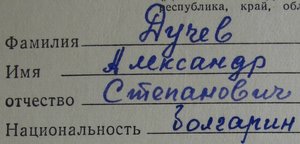 республика, край, обл
Фамилия Дучев
Имя Александр
отчество Степанович
Национальность Болгарин